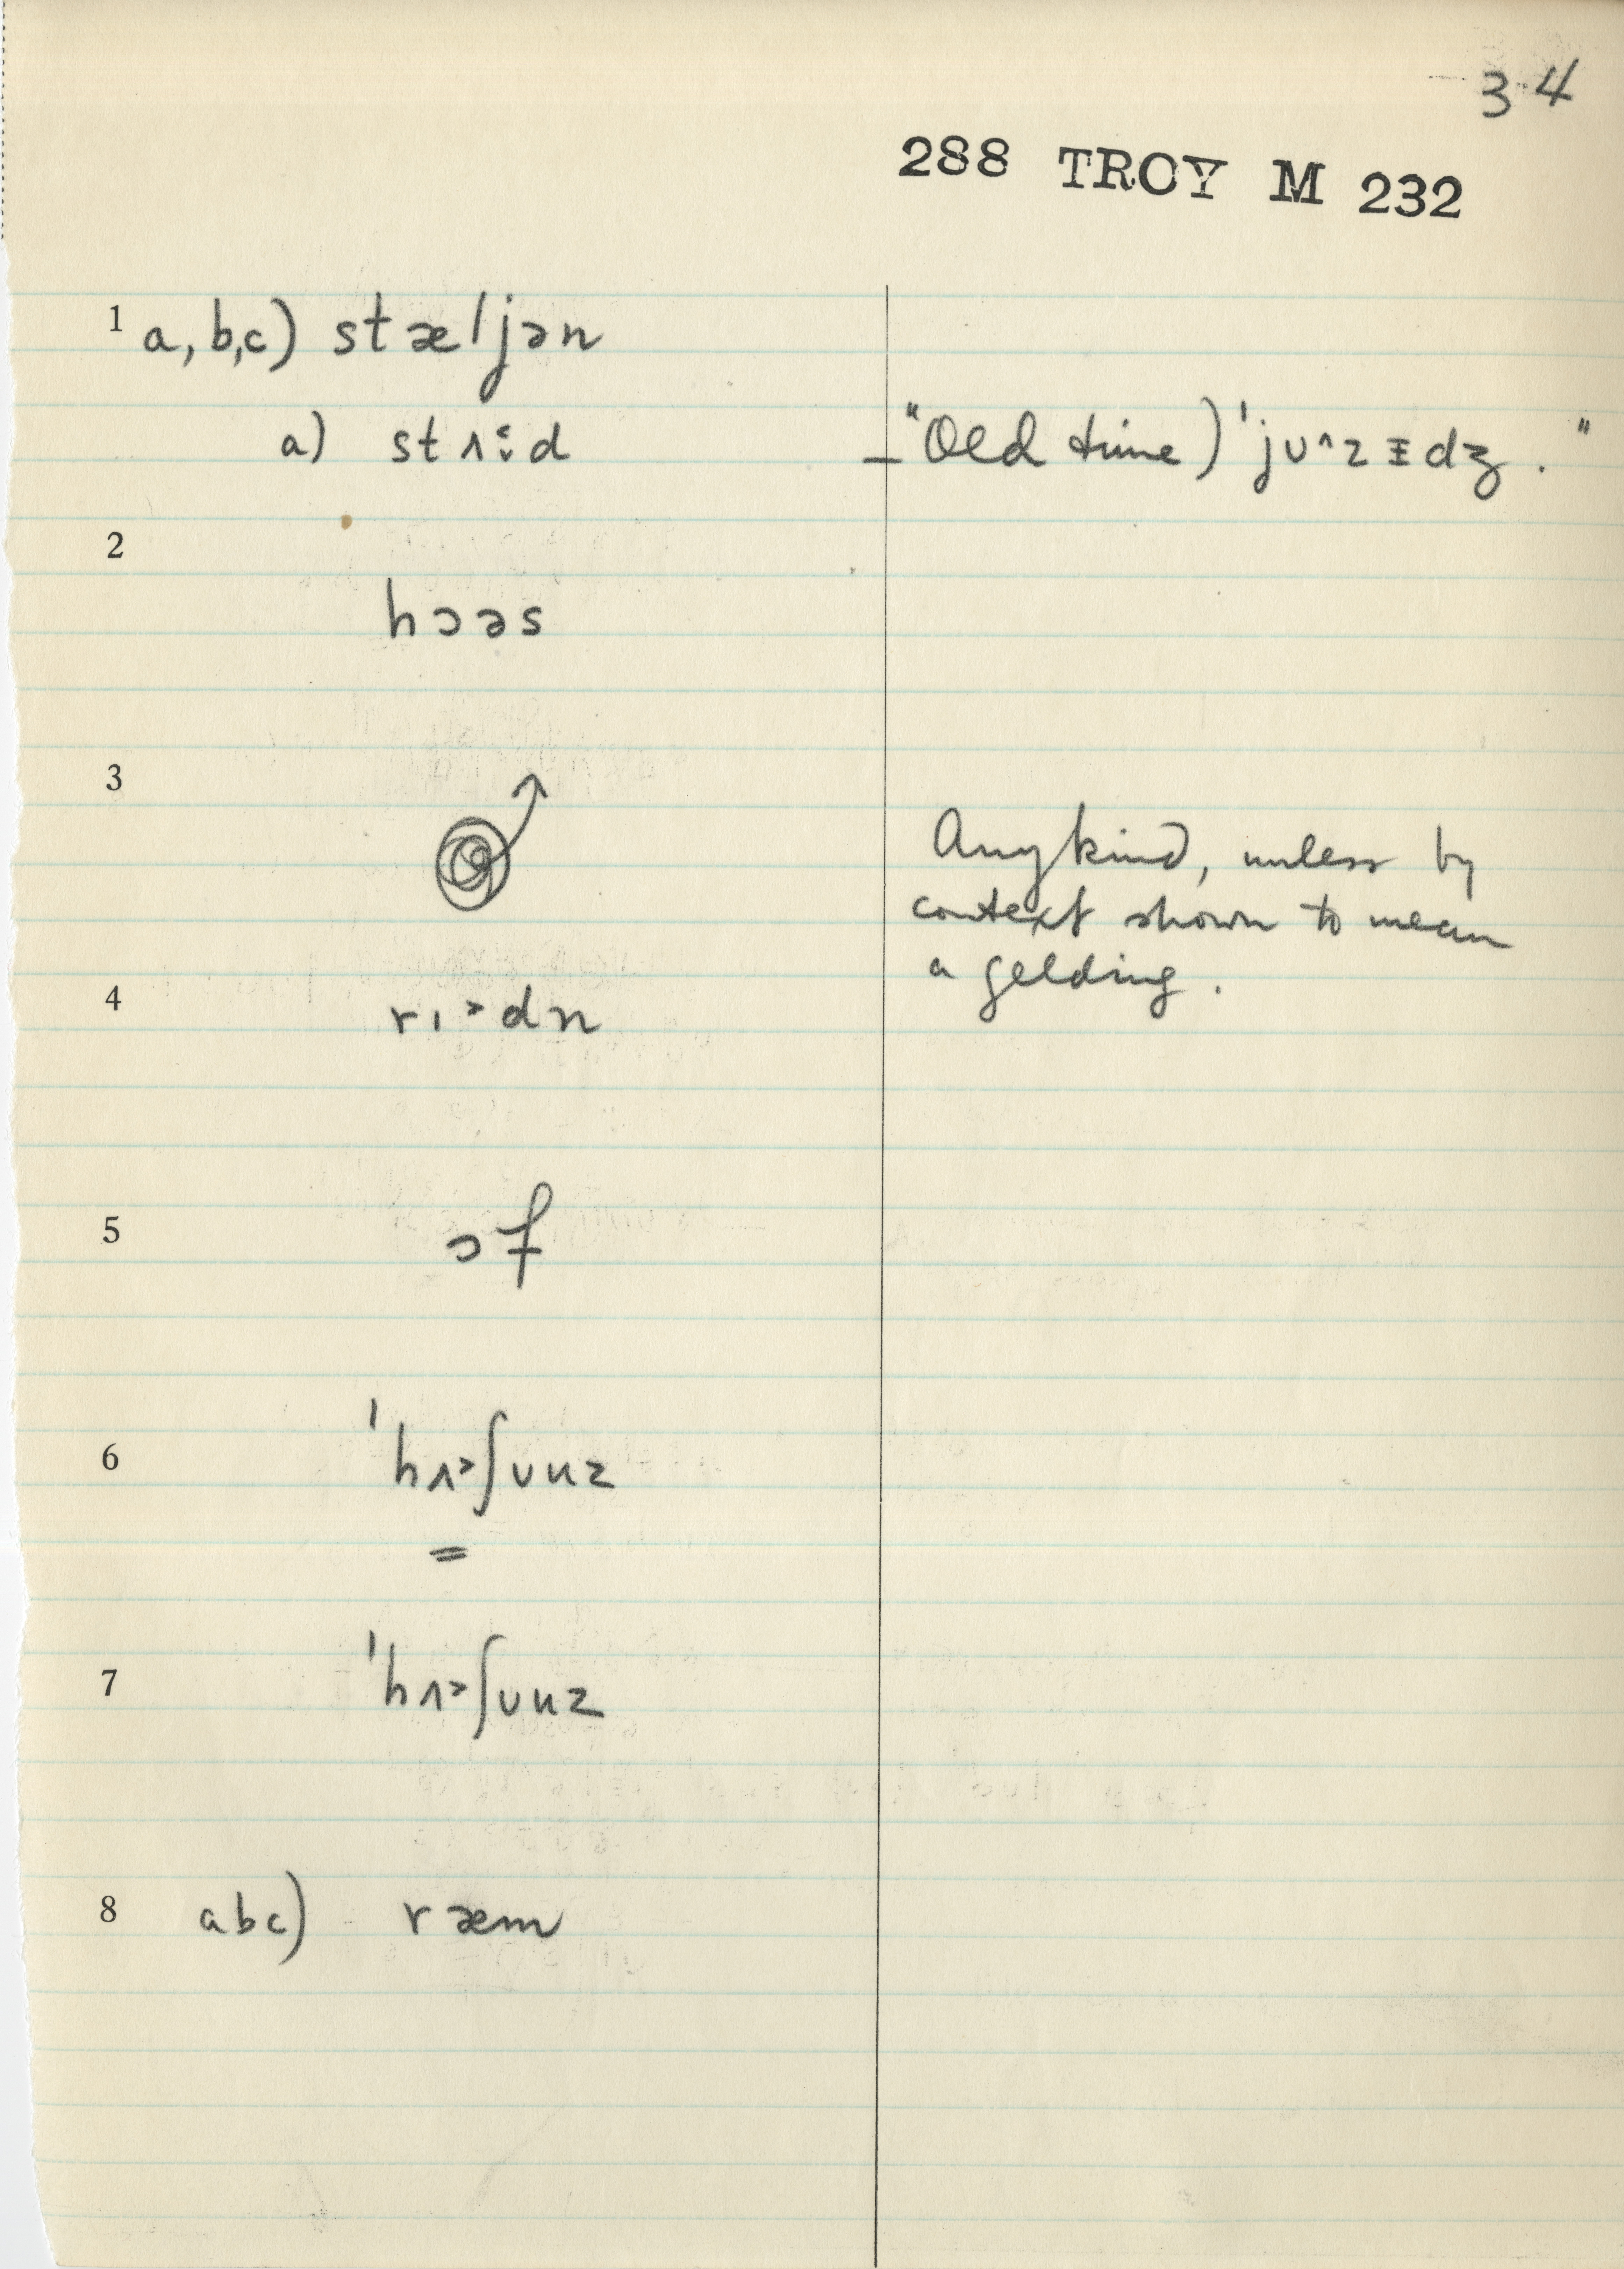 34
288 TROY M 232
1 a,b,c) stæljən
a) stʌ:d
"Old time) 'jᴜ^zɪdʒ."
2
hɔəs
3
Any kind, unless by
context shown to mean
a gelding.
4 rɪ˃dn
5 ɔf
6 'hʌ˃ʃᴜnz
=
7 'hʌ˃ʃᴜnz
8 abc) ræm